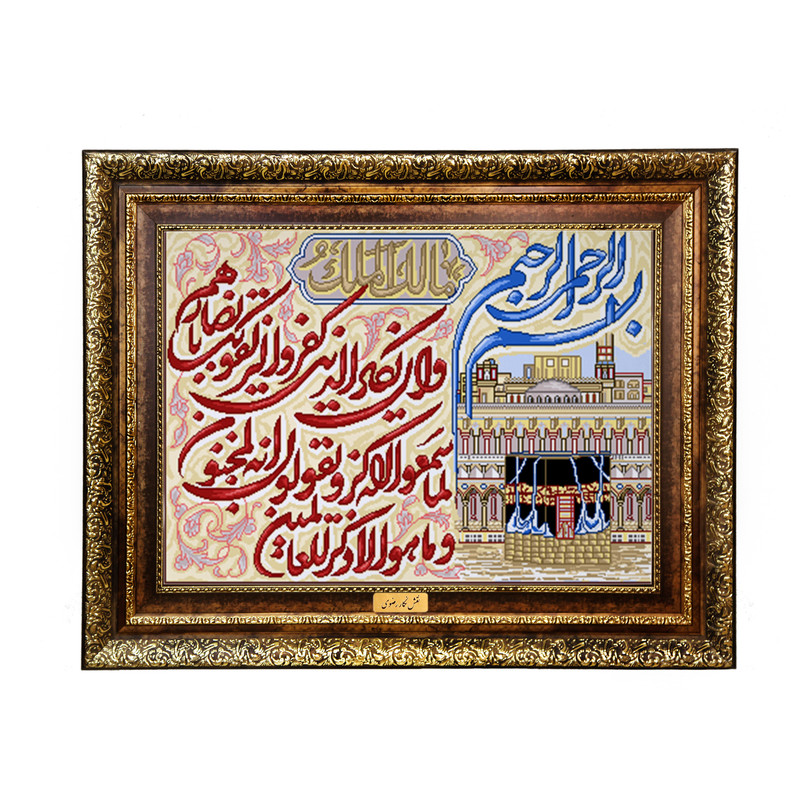 بسم الله الرحمن الرحیم
مالك الملك
وان یکاد الذین کفروا لیزلقونک بابصارهم
لما سمعوا الذکر و یقولون انه لمجنون
و ما هو الا ذکر للعالمین
نقش نگار رضوی